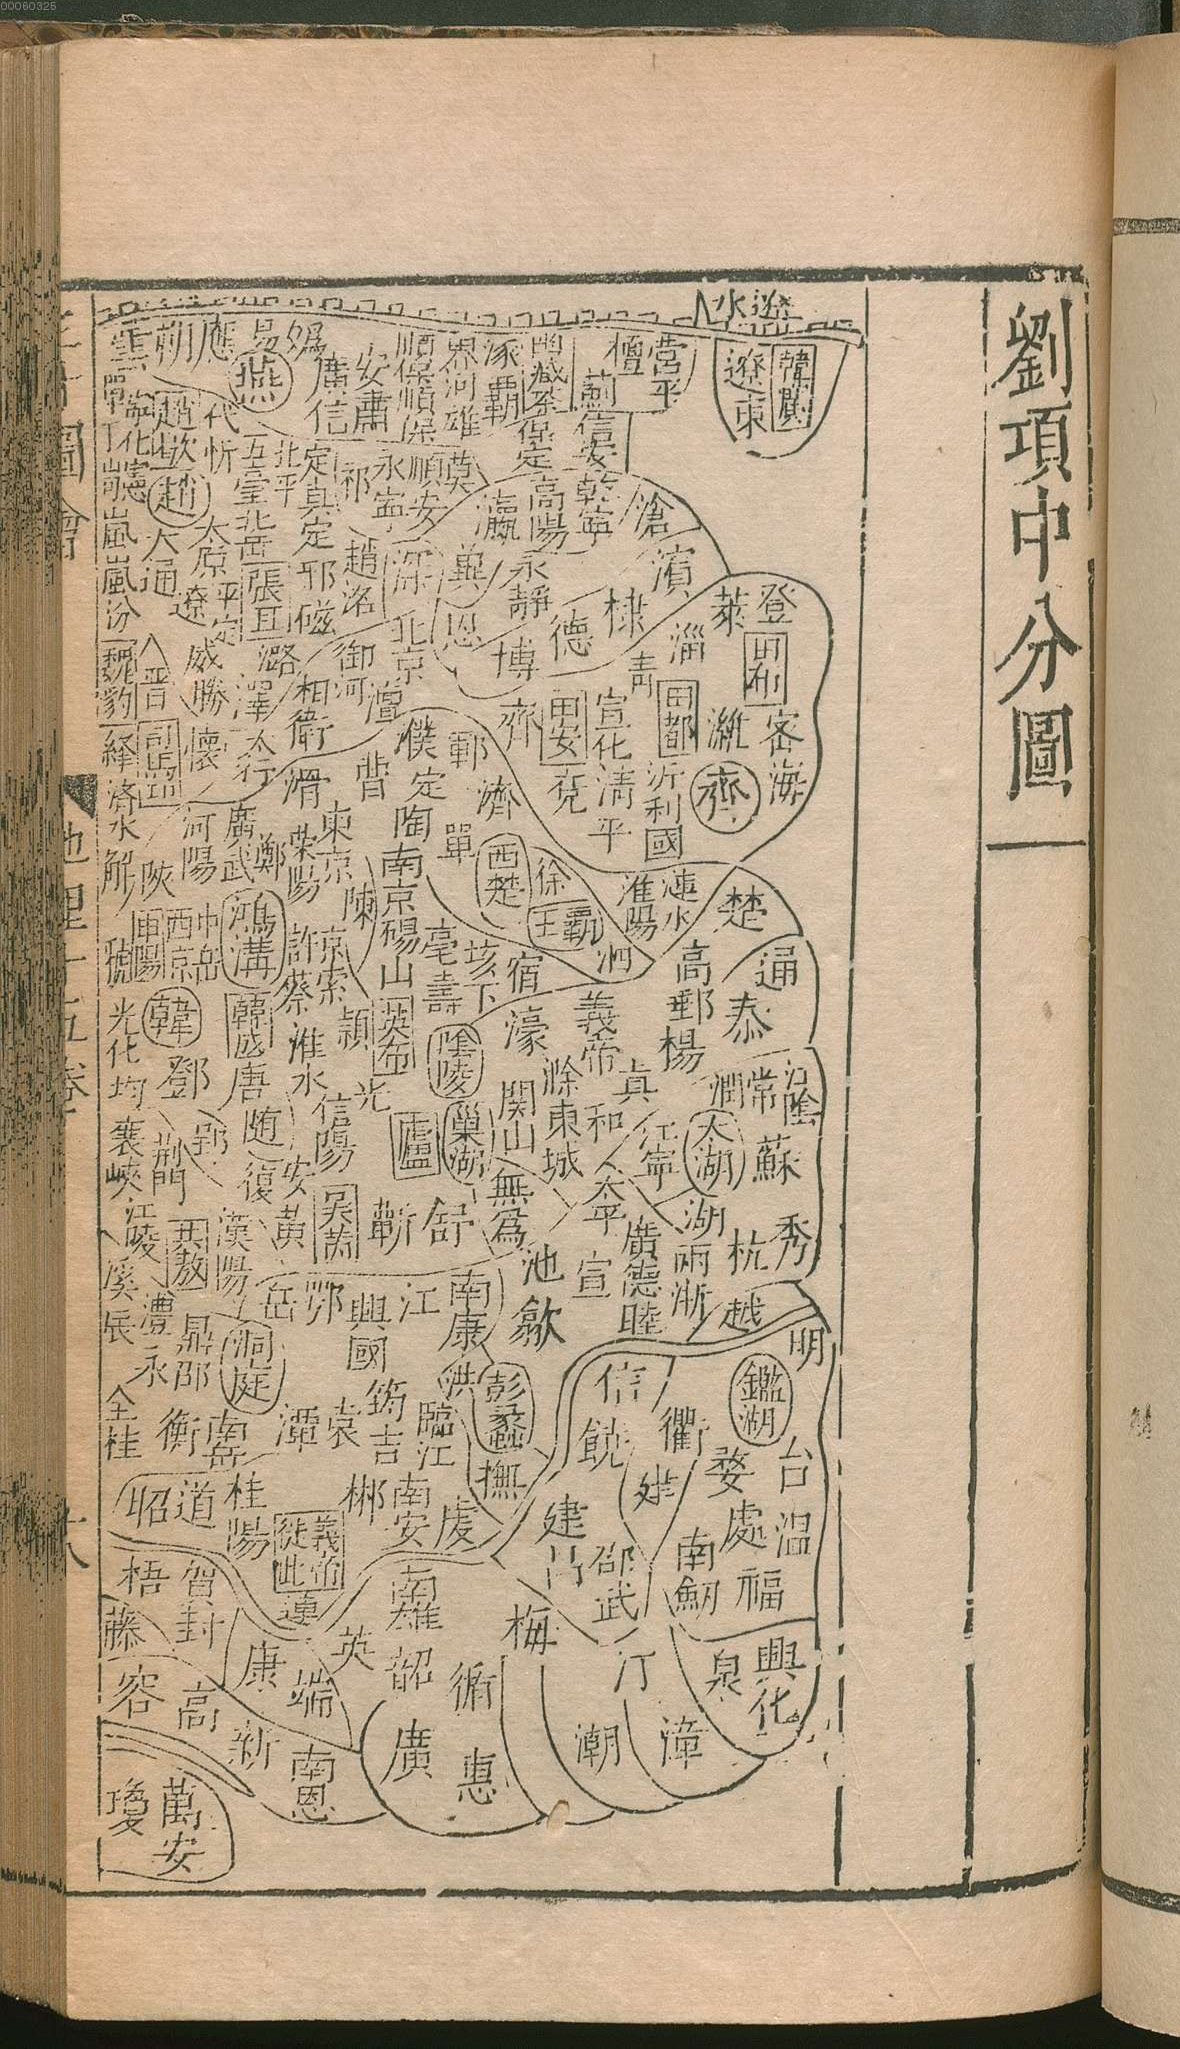 00060325
劉項中分圖
遼水
遼東
韓廣
營平
檀
薊
信安
涿
霸
保定
界河
雄
安肅
廣信
媯
易
燕
應
朔
雲
趙
代
忻
五臺
北岳
北平
定
真定
祁
永寧
順安
莫
瀛
高陽
乾寧
滄
濱
棣
德
永靜
冀
恩
博
深
北京
趙
洺
邢
磁
張耳
太原
平定
遼
大通
嵐
汾
晉
威勝
潞
澤
太行
相
衛
御河
澶
魏豹
絳
濟水
解
懷
登
萊
淄
青
田都
濰
密
海
齊
宣化
清平
沂
利國
田安
兗
齊
濟
鄆
濮
定陶
單
曹
滑
東京
滎陽
鄭
廣武
河陽
陝
虢
申陽
西京
中岳
鴻溝
許
蔡
京索
陳
南京
碭山
亳
壽
垓下
宿
泗
西楚
霸王
徐
淮陽
漣水
楚
通
泰
高郵
楊
義帝
濠
陰陵
英布
潁
淮水
韓成
唐
韓
鄧
光化
均
襄
峽
江陵
荊門
郢
隨
復
信陽
光
安
黃
吳芮
蘄
舒
廬
巢湖
關山
無為
滁
東城
和
真
江寧
太平
潤
常
江陰
大湖
蘇
秀
湖
杭
兩浙
廣德
睦
宣
池
歙
越
明
鑑湖
台
溫
婺
處
衢
信
饒
建
南劒
福
興化
泉
漳
汀
潮
梅
邵武
建昌
撫
彭蠡
洪
南康
江
興國
鄂
岳
漢陽
共敖
澧
鼎
邵
洞庭
溪
辰
永
全
桂
衡
南岳
潭
袁
筠
吉
臨江
虔
南安
郴
桂陽
道
昭
義帝徙此
連
賀
封
梧
藤
容
高
康
端
新
南恩
英
南雄
韶
循
惠
廣
萬安
瓊